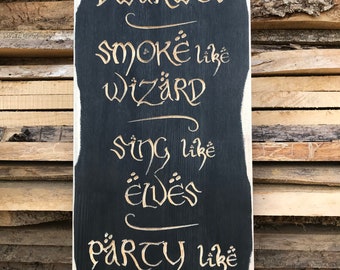 SMOKE like
WIZARD
SING like
ELVES
PARTY like